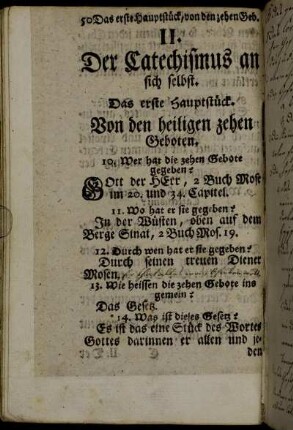 50 Das erste Hauptstück, von den zehen Geb.
II.
Der Catechismus an
sich selbst.
Das erste Hauptstück.
Von den heiligen zehen
Geboten.
10. Wer hat die zehen Gebote
gegeben?
GOtt der HErr, 2 Buch Mose
im 20. und 34. Capittel.
11. Wo hat er sie gegeben?
In der Wüsten, oben auf dem
Berge Sinai, 2 Buch Mos. 19.
12. Durch wen hat er sie gegeben?
Durch seinen treuen Diener
Mosen,
13. Wie heissen die zehen Gebote ins
gemein?
Das Gesetz.
14. Was ist dieses Gesetz?
Es ist das eine Stück des Wortes
Gottes darinnen er allen und je-
den